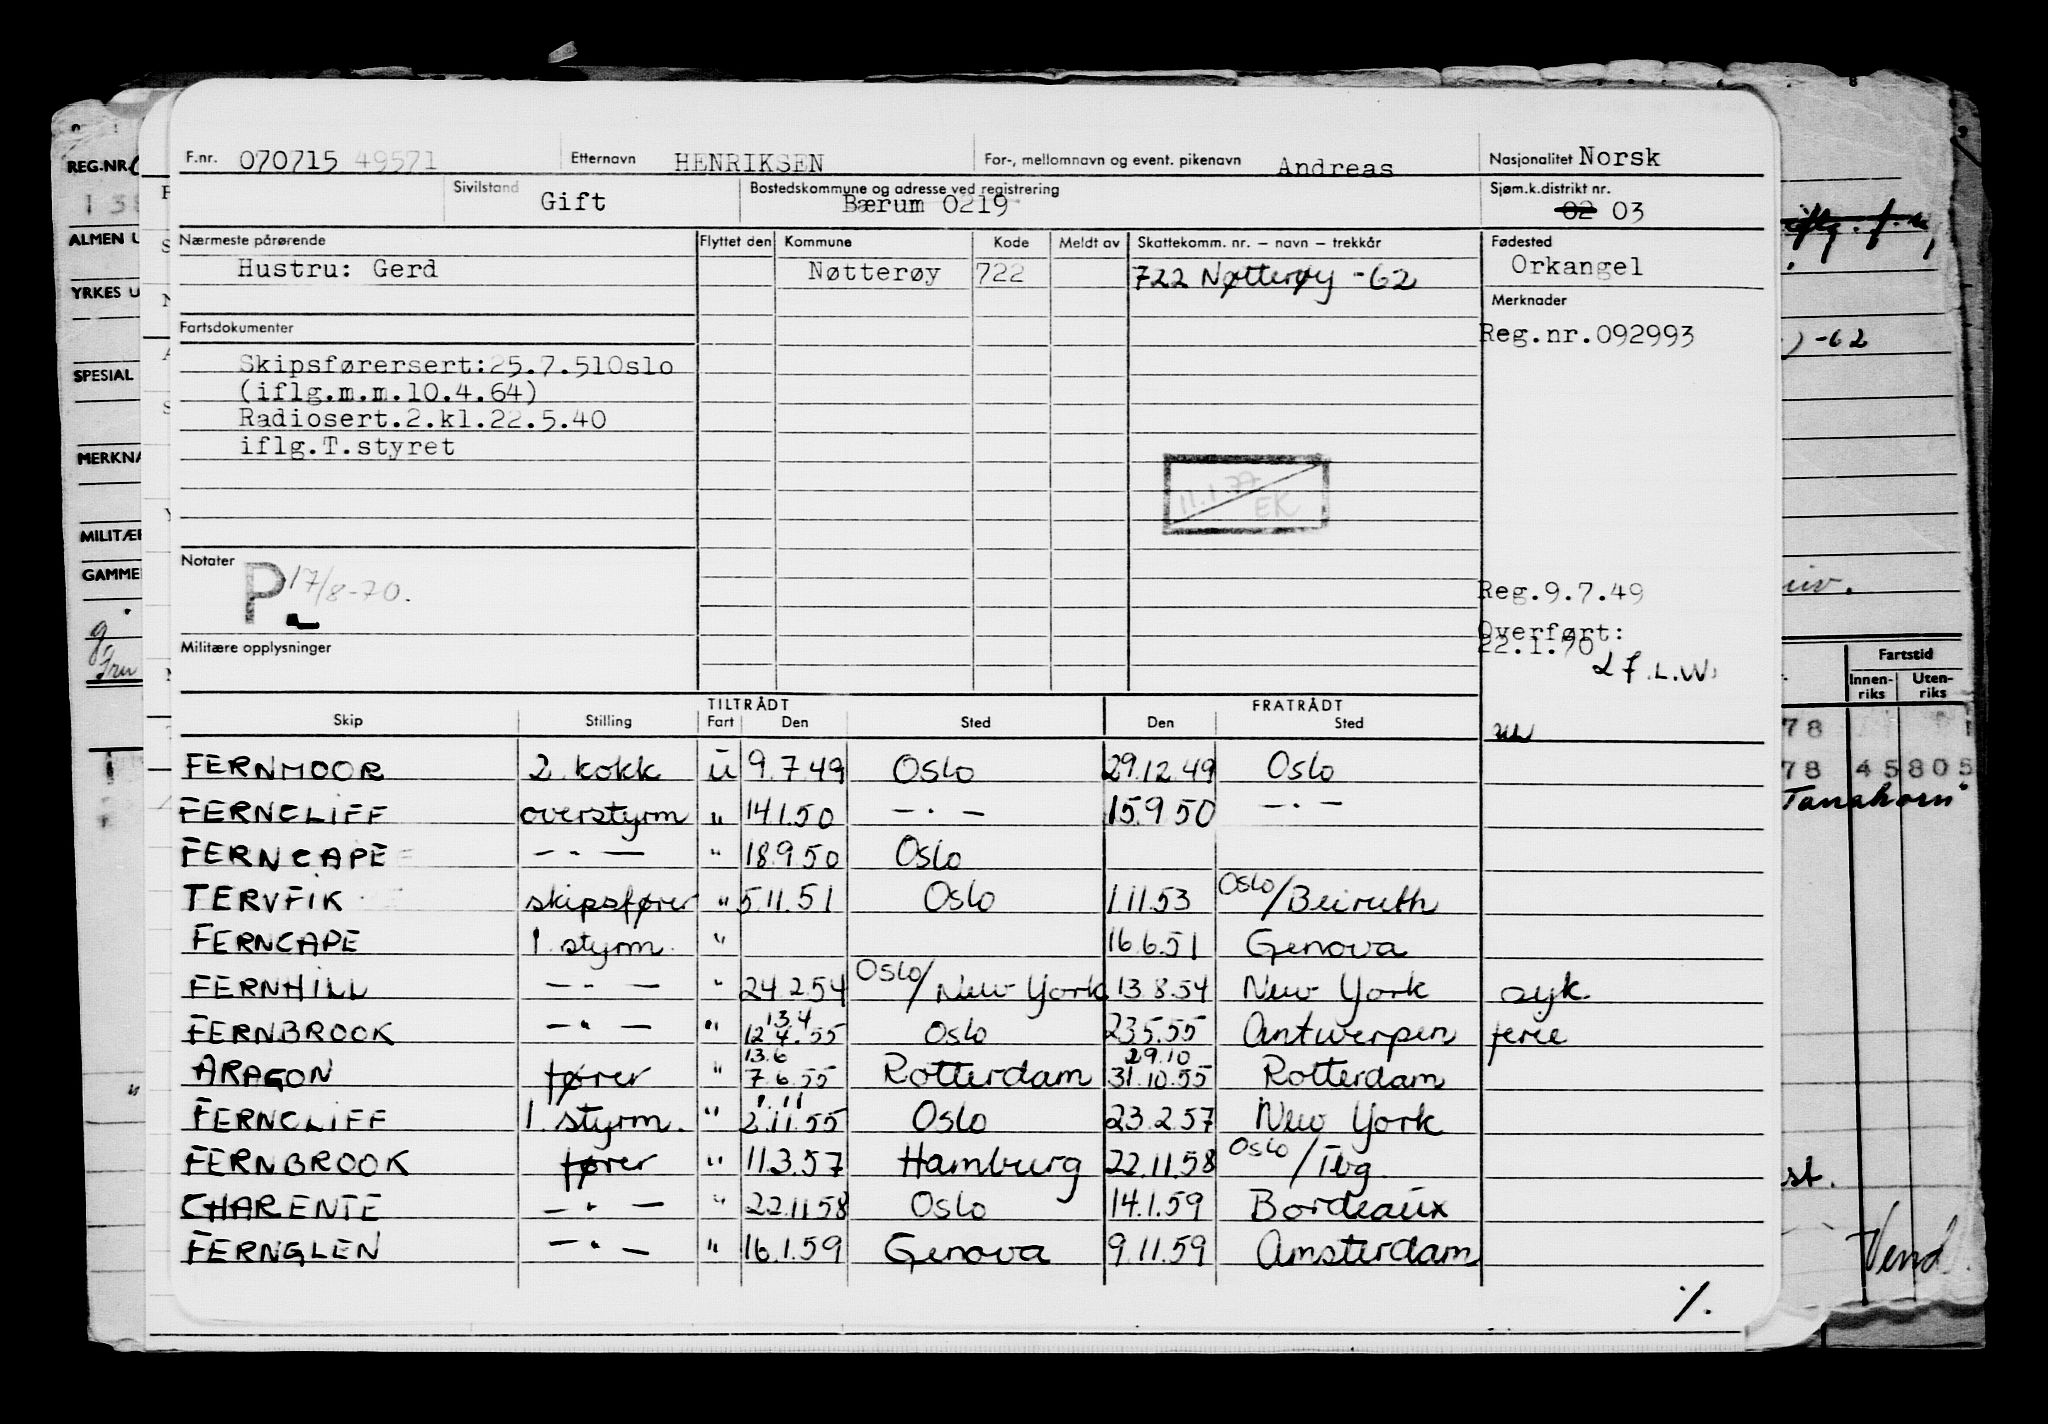 F.nr. 070715 49571 Etternavn HENRIKSEN For-, mellomnavn og event. pikenavn Andreas Nasjonalitet Norsk
Sivilstand Gift Bostedskommune og adresse ved registrering Bærum 0219 Sjøm.k.distrikt nr. 02 03
Nærmeste pårørende Flyttet den Kommune Kode Meldt av Skattekomm. nr. – navn – trekkår Fødested
Hustru: Gerd Nøtterøy 722 722 Nøtterøy -62 Orkangel
Merknader
Fartsdokumenter
Reg.nr.092993
Skipsførersert:25.7.51Oslo
(iflg.m.m.10.4.64)
Radiosert.2.kl.22.5.40
iflg.T.styret
11.1.77 EK
Notater
P 17/8-70.
Reg.9.7.49
Overført:
22.1.70
Militære opplysninger
L.W.
TILTRÅDT FRATRÅDT
Skip Stilling Fart Den Sted Den Sted
FERNMOOR 2. kokk u 9.7.49 Oslo 29.12.49 Oslo
FERNCLIFF overstyrm " 14.1.50 — · — 15.9.50 — · —
FERNCAPE — " — " 18.9.50 Oslo
TERVFIK skipsfører " 5.11.51 Oslo 1.11.53 Oslo/Beiruth
FERNCAPE 1. styrm. " 16.6.51 Genova
FERNHILL — " — " 24.2.54 Oslo/New York 13.8.54 New York syk.
FERNBROOK — " — " 13.4 12.4.55 Oslo 23.5.55 Antwerpen ferie
ARAGON fører " 13.6 7.6.55 Rotterdam 29.10 31.10.55 Rotterdam
FERNCLIFF 1. styrm. " 1.11 2.11.55 Oslo 23.2.57 New York
FERNBROOK fører " 11.3.57 Hamburg 22.11.58 Oslo/Tbg.
CHARENTE — " — " 22.11.58 Oslo 14.1.59 Bordeaux
FERNGLEN — " — " 16.1.59 Genova 9.11.59 Amsterdam
·/.
REG.NR.
ALMEN U
YRKES U
SPESIAL
MERKNA
MILITÆR
GAMME
-62
Fartstid
Innen-riks Uten-riks
78
78 45805
"Tanahorn"
st.
Vend